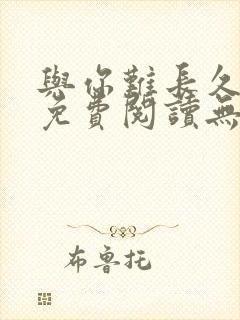 與你難長久
免費閱讀無
布魯托